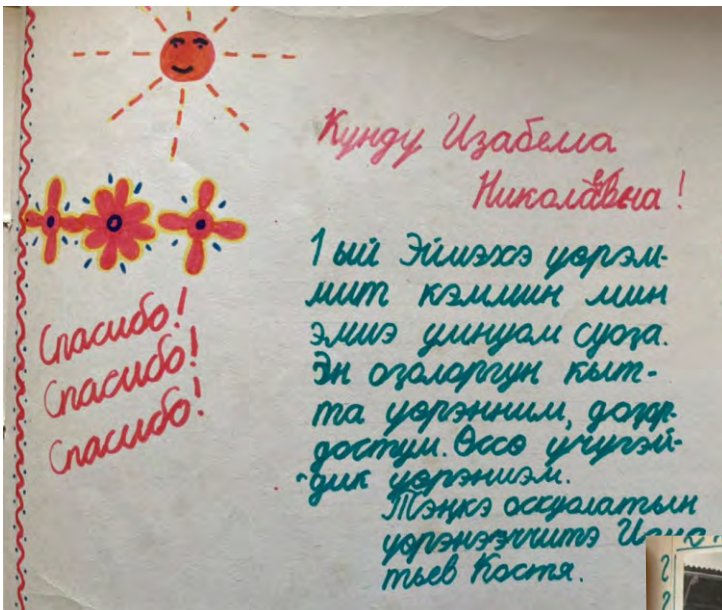 Кунду Изабелла
Николаевна!
1 ый Эйиэхэ үөрэм-
мит кэммин мин
эмиэ умнуом суоҕа.
Эн оҕолоргун кыт-
та үөрэнним, доҕор-
достум. Өссө үчүгэй-
дик үөрэниэм.
Тэҥкэ оскуолатын
үөрэнээччитэ Игна-
тьев Костя.
Спасибо!
Спасибо!
Спасибо!